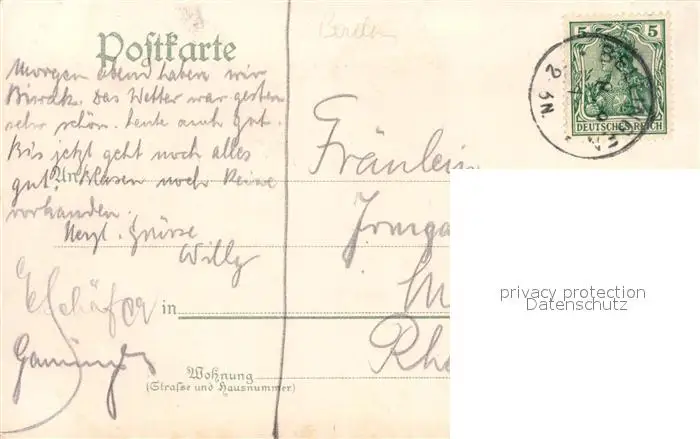 Postkarte
Morgen abend haben wir
Biwak. Das Wetter war gestern
sehr schön. heute auch gut.
Bis jetzt geht noch alles
gut. Blasen noch keine
vorhanden.
Herzl. Grüsse
Willy
E Schäfer
An
in
Wohnung
(Strafse und Hausnummer)
Fräulein
Irmga
M
Rhe
5 5
DEUTSCHES REICH
2. 3N.
privacy protection
Datenschutz